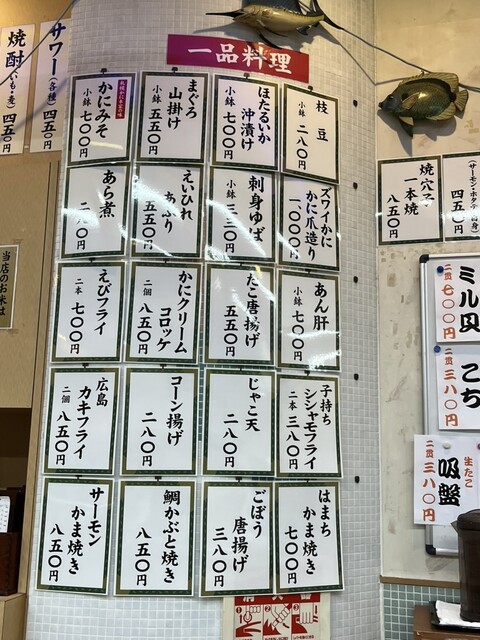 一品料理
枝豆
小鉢 二八〇円
ほたるいか
沖漬け
小鉢 七〇〇円
まぐろ
山掛け
小鉢 五五〇円
かにみそ
小鉢 七〇〇円
ズワイかに
かに爪造り
一〇〇〇円
刺身ゆば
小鉢 三三〇円
えいひれ
あぶり
五五〇円
あら煮
二八〇円
あん肝
小鉢 七〇〇円
たこ唐揚げ
五五〇円
かにクリーム
コロッケ
二個 八五〇円
えびフライ
二本 七〇〇円
子持ち
シシャモフライ
二本 三八〇円
じゃこ天
二八〇円
コーン揚げ
二八〇円
広島
カキフライ
二個 八五〇円
はまち
かま焼き
七〇〇円
ごぼう
唐揚げ
三八〇円
鯛かぶと焼き
八五〇円
サーモン
かま焼き
八五〇円
サワー(各種)
四五〇円
焼酎(いも・麦)
四五〇円
当店のお米は
焼穴子
一本焼
八五〇円
四五〇円
ミル貝
二貫 七〇〇円
こち
二貫 三八〇円
生たこ
吸盤
二貫 三八〇円